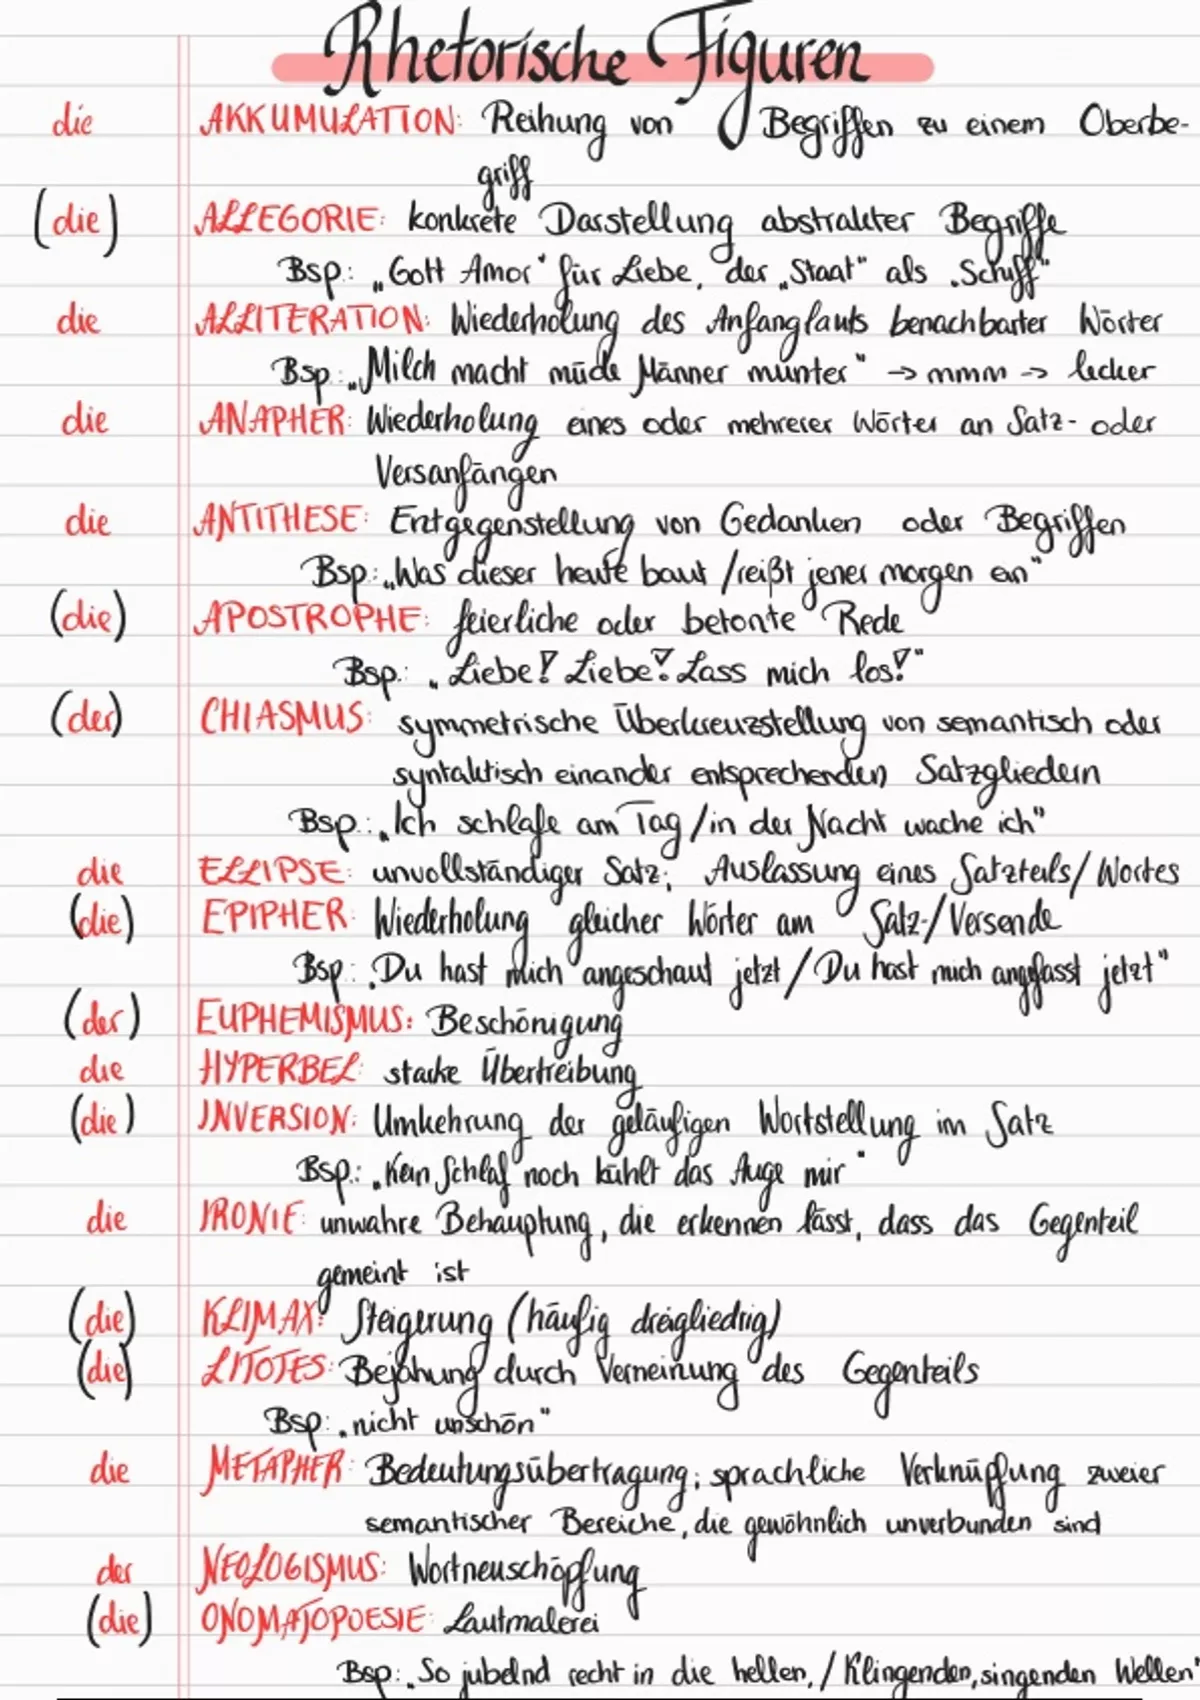 Rhetorische Figuren
die AKKUMULATION: Reihung von Begriffen zu einem Oberbe-
griff
(die) ALLEGORIE: konkrete Darstellung abstrakter Begriffe
Bsp.: „Gott Amor" für Liebe, der „Staat" als „Schiff"
die ALLITERATION: Wiederholung des Anfanglauts benachbarter Wörter
Bsp.: „Milch macht müde Männer munter" → mmm → lecker
die ANAPHER: Wiederholung eines oder mehrerer Wörter an Satz- oder
Versanfängen
die ANTITHESE: Entgegenstellung von Gedanken oder Begriffen
Bsp.: „Was dieser heute baut / reißt jener morgen ein"
(die) APOSTROPHE: feierliche oder betonte Rede
Bsp.: „Liebe! Liebe! Lass mich los!"
(der) CHIASMUS: symmetrische Überkreuzstellung von semantisch oder
syntaktisch einander entsprechenden Satzgliedern
Bsp.: „Ich schlafe am Tag / in der Nacht wache ich"
die ELLIPSE: unvollständiger Satz; Auslassung eines Satzteils/Wortes
(die) EPIPHER: Wiederholung gleicher Wörter am Satz-/Versende
Bsp.: „Du hast mich angeschaut jetzt / Du hast mich angefasst jetzt"
(der) EUPHEMISMUS: Beschönigung
die HYPERBEL: starke Übertreibung
(die) INVERSION: Umkehrung der geläufigen Wortstellung im Satz
Bsp.: „Kein Schlaf noch kühlt das Auge mir"
die IRONIE: unwahre Behauptung, die erkennen lässt, dass das Gegenteil
gemeint ist
(die) KLIMAX: Steigerung (häufig dreigliedrig)
(die) LITOTES: Bejahung durch Verneinung des Gegenteils
Bsp.: „nicht unschön"
die METAPHER: Bedeutungsübertragung; sprachliche Verknüpfung zweier
semantischer Bereiche, die gewöhnlich unverbunden sind
der NEOLOGISMUS: Wortneuschöpfung
(die) ONOMATOPOESIE: Lautmalerei
Bsp.: „So jubelnd recht in die hellen, / Klingenden, singenden Wellen"